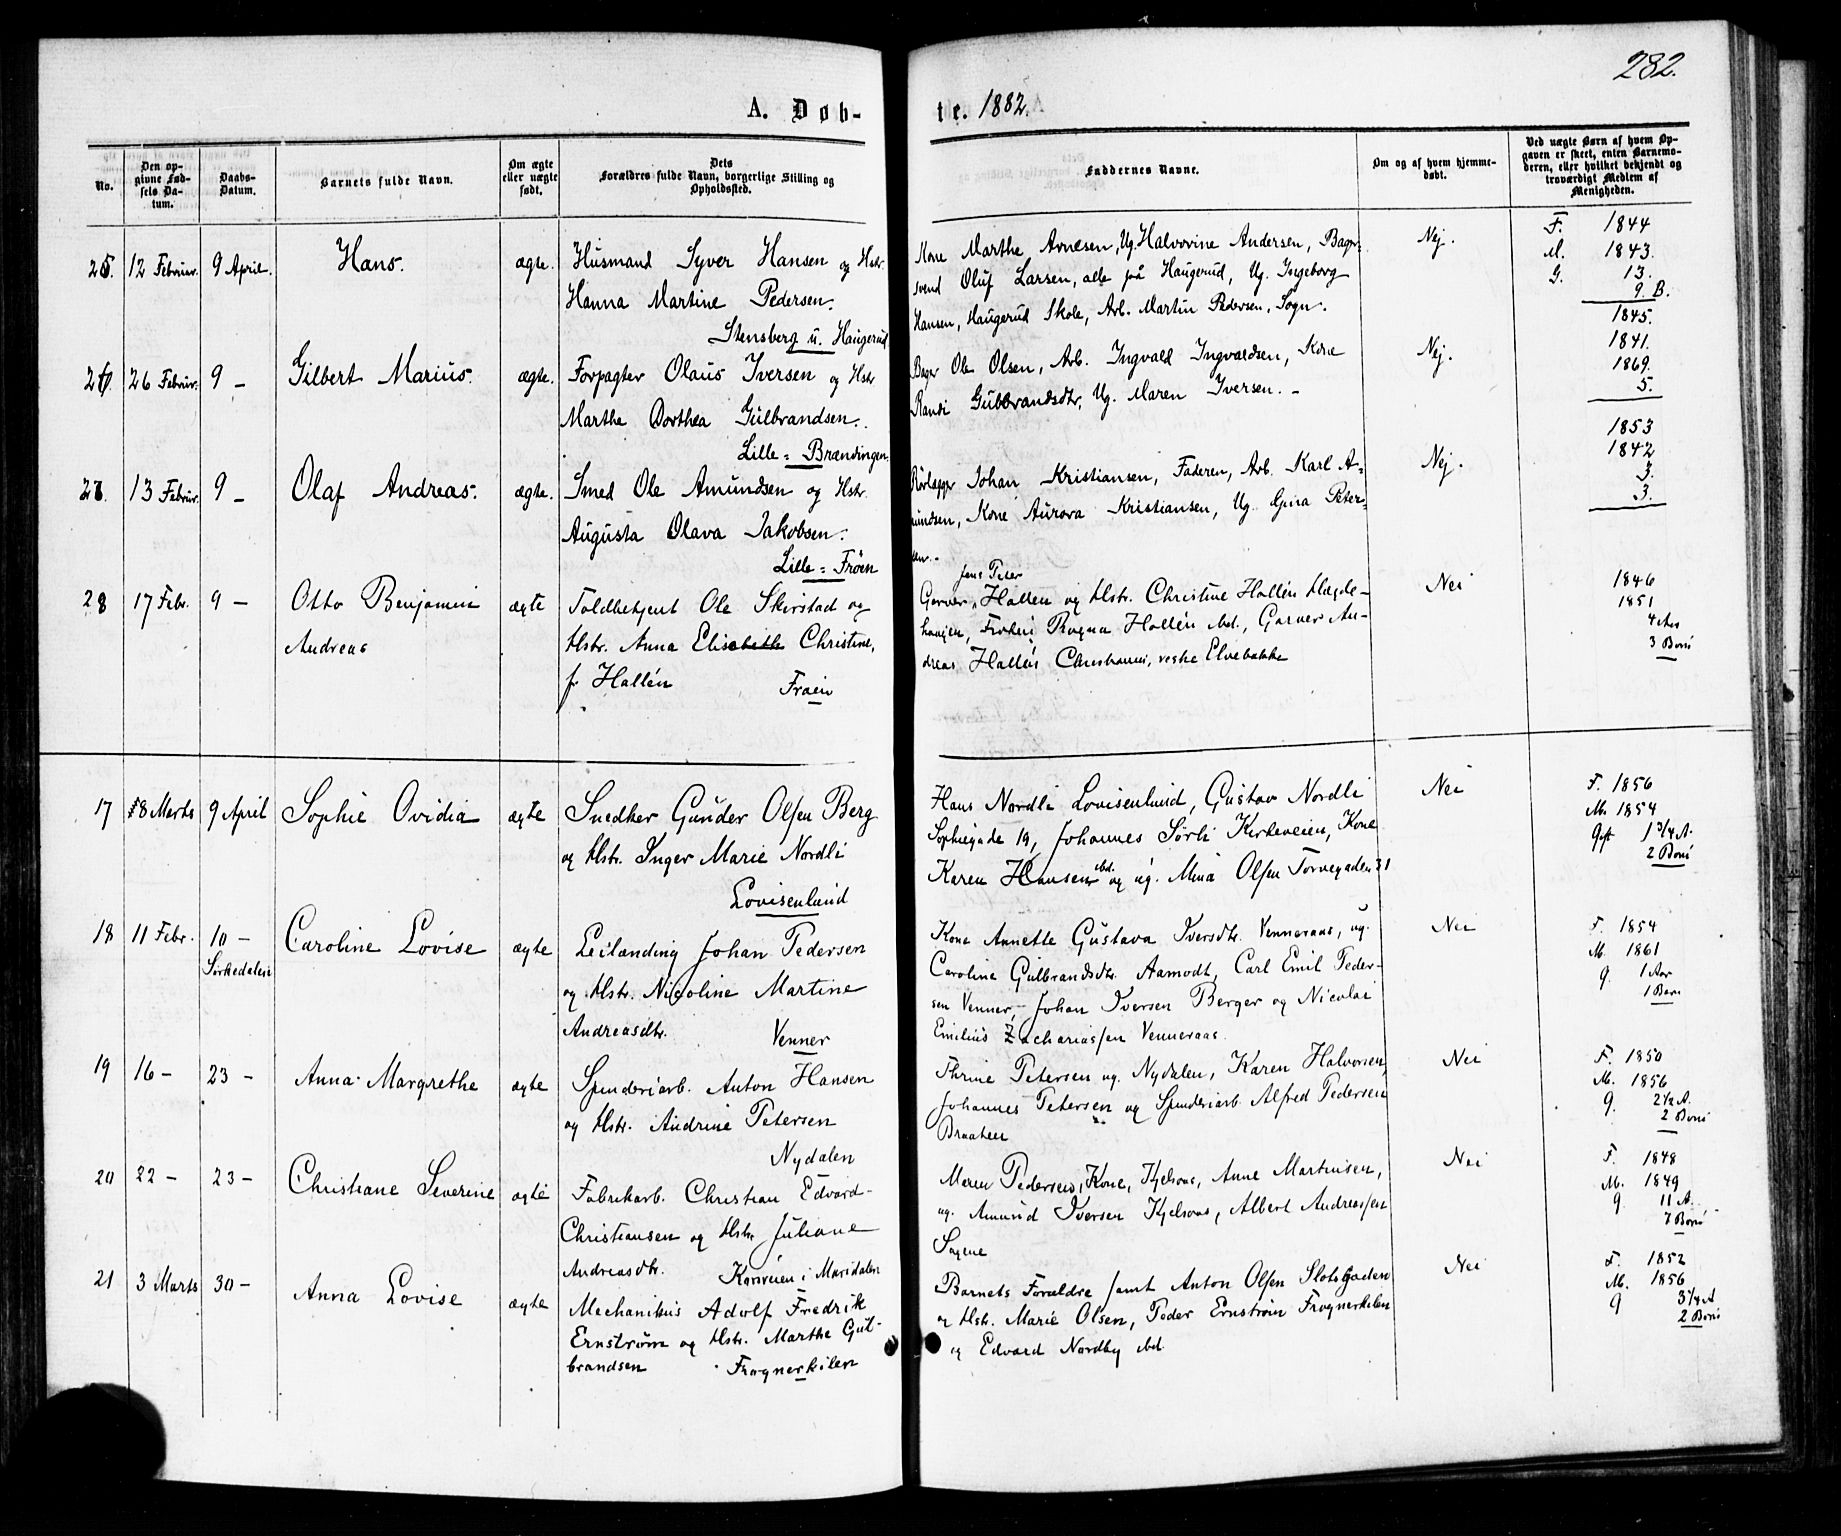 282.
A. Døb-
te. 1882.
No.
Den op-
givne Fød-
sels Da-
tum.
Daabs-
Datum.
Barnets fulde Navn.
Om ægte
eller uægte
født.
Dets
Forældres fulde Navn, borgerlige Stilling og
Opholdssted.
Faddernes Navne.
Om og af hvem hjemme-
døbt.
Ved uægte Børn af hvem Op-
gaven er skeet, enten Barnemo-
deren, eller hvilket bekjendt og
troværdigt Medlem af
Menigheden.
25. 12 Februar. 9 April. Hans. ægte. Husmand Syver Hansen og Hstr.
Hanna Martine Pedersen.
Stensberg u. Haugerud
Kone Marthe Arnesen, Ug. Halvorine Andersen, Bager-
svend Oluf Larsen, alle på Haugerud, Ug. Ingeborg
Hansen, Haugerud Skole, Arb. Martin Pedersen, Sogn.
Nej.
F. 1844
M. 1843.
G. 13.
9. B.
26. 26 Februar. 9 - Gilbert Marius. ægte. Forpagter Olaus Iversen og Hstr
Marthe Dorthea Gulbrandsen.
Lille-Brændingen.
Bager Ole Olsen, Arb. Ingvald Ingvaldsen, Kone
Randi Gulbrandsdtr, Ug. Maren Iversen. -
Nej.
1845.
1841.
1869.
5.
27. 13 Februar. 9 - Olaf Andreas. ægte. Smed Ole Amundsen og Hstr.
Augusta Olava Jakobsen.
Lille-Frøen
Rørlægger Johan Kristiansen, Faderen, Arb. Karl A-
mundsen, Kone Aurora Kristiansen, Ug. Gina Peter-
sen.
Nej.
1853
1842
3.
3.
28 17 Febr. 9 - Otto Benjamin
Andreas
ægte Toldbetjent Ole Skirstad og
Hstr. Anna Elisabeth Christine,
f. Hallén Fraen
Jens Peter
Garver, Hallén og Hstr. Christine Hallén Hægde-
haugen, Frøken Ragna Hallén ibd., Garver An-
dreas Hallén Christiania, vestre Elvebakke
Nei
1846
1851
4 Aar
3 Børn
17 8 Marts 9 April Sophie Ovidia ægte Snedker Gunder Olsen Berg
og Hstr. Inger Marie Nordli
Lovisenlund
Hans Nordli Lovisenlund, Gustav Nordli
Sophiegade 19, Johannes Sørli Kirkeveien, Kone
Karen Hansen ibd. og ug. Mina Olsen Torvegaden 31
Nei
F. 1856
M. 1854
gift 1 3/4 A.
2 Børn
18 11 Febr. 10 -
Sørkedalen
Caroline Lovise ægte Leilænding Johan Pedersen
og Hstr. Nicoline Martine
Andreasdtr. Venner
Kone Annette Gustava Iversdtr. Venneraas, ug.
Caroline Gulbrandsdtr. Aamodt, Carl Emil Peder-
sen Venner, Johan Iversen Berger og Nicolai
Emilius Zachariassen Venneraas.
Nei
F. 1854
M. 1861
g. 1 Aar
1 Barn
19 16 - 23 - Anna Margrethe ægte Spinderiarb. Anton Hansen
og Hstr. Andrine Petersen
Nydalen
Thrine Petersen ug. Nydalen, Karen Halvorsen,
Johannes Petersen og Spinderiarb. Alfred Pedersen
Braaten
Nei
F. 1850
M. 1856
g. 2 1/2 A.
2 Børn
20 22 - 23 - Christiane Severine ægte Fabrikarb. Christian Edvard
Christiansen og Hstr. Juliane
Andreasdtr. Kasveien i Maridalen
Maren Pedersen, Kone, Kjelsaas, Anne Martinsen,
ug. Amund Iversen Kjelsaas, Albert Andreassen
Sagene
Nei
F. 1848
M. 1849
g 11 A.
7 Børn
21 3 Marts 30 - Anna Lovise ægte Mechanikus Adolf Fredrik
Ernstrøm og Hstr. Marthe Gul-
brandsen Frognerkilen
Barnets Forældre samt Anton Olsen Slotsgaden
og Hstr. Marie Olsen, Peder Ernstrøm Frognerkilen
og Edvard Nordby ibd.
Nei
F. 1852
M. 1856
g 3 1/4 A
2 Børn